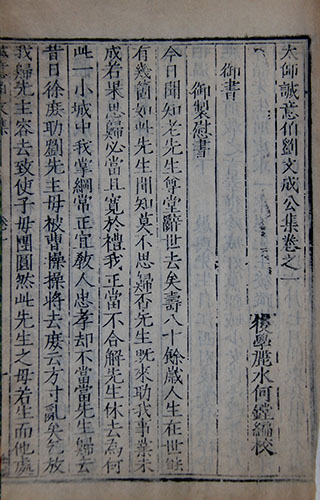 太師誠意伯劉文成公集卷之一
後學麗水何鏜編校
御書
御製慰書
今日聞知老先生尊堂辭世去矣壽八十餘歲人生在世能
有幾箇如此先生聞知莫不思歸否先生既來助我事業未
成若果思歸必當且寬於禮我正當不合解先生休去為何
此一小城中我掌綱常正宜教人忠孝却不當當先生歸去
昔日徐庶助劉先主母被曹操操將去庶云方寸亂矣乞放
我歸先主容去致使子母團圓然此先生之母若生而他處